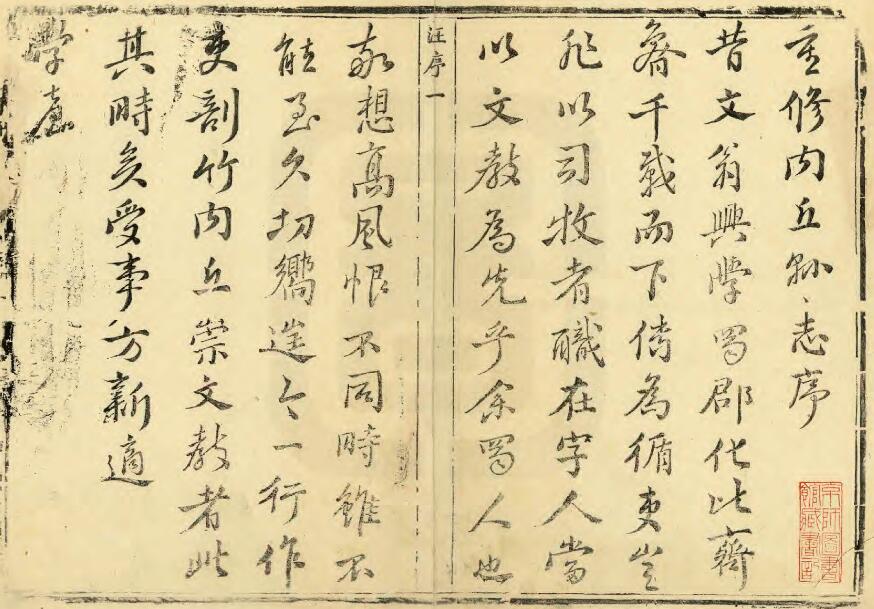 重修内丘縣志序
昔文翁興學蜀郡化比齊
魯千載而下傳為循吏豈
非以司牧者職在字人當
以文教為先乎余蜀人也
汪序一
敬想高風恨不同時雖不
能至久切嚮往今一行作
吏剖竹内丘崇文教者此
其時矣受事方新適
學臺
京師圖書
館藏書記